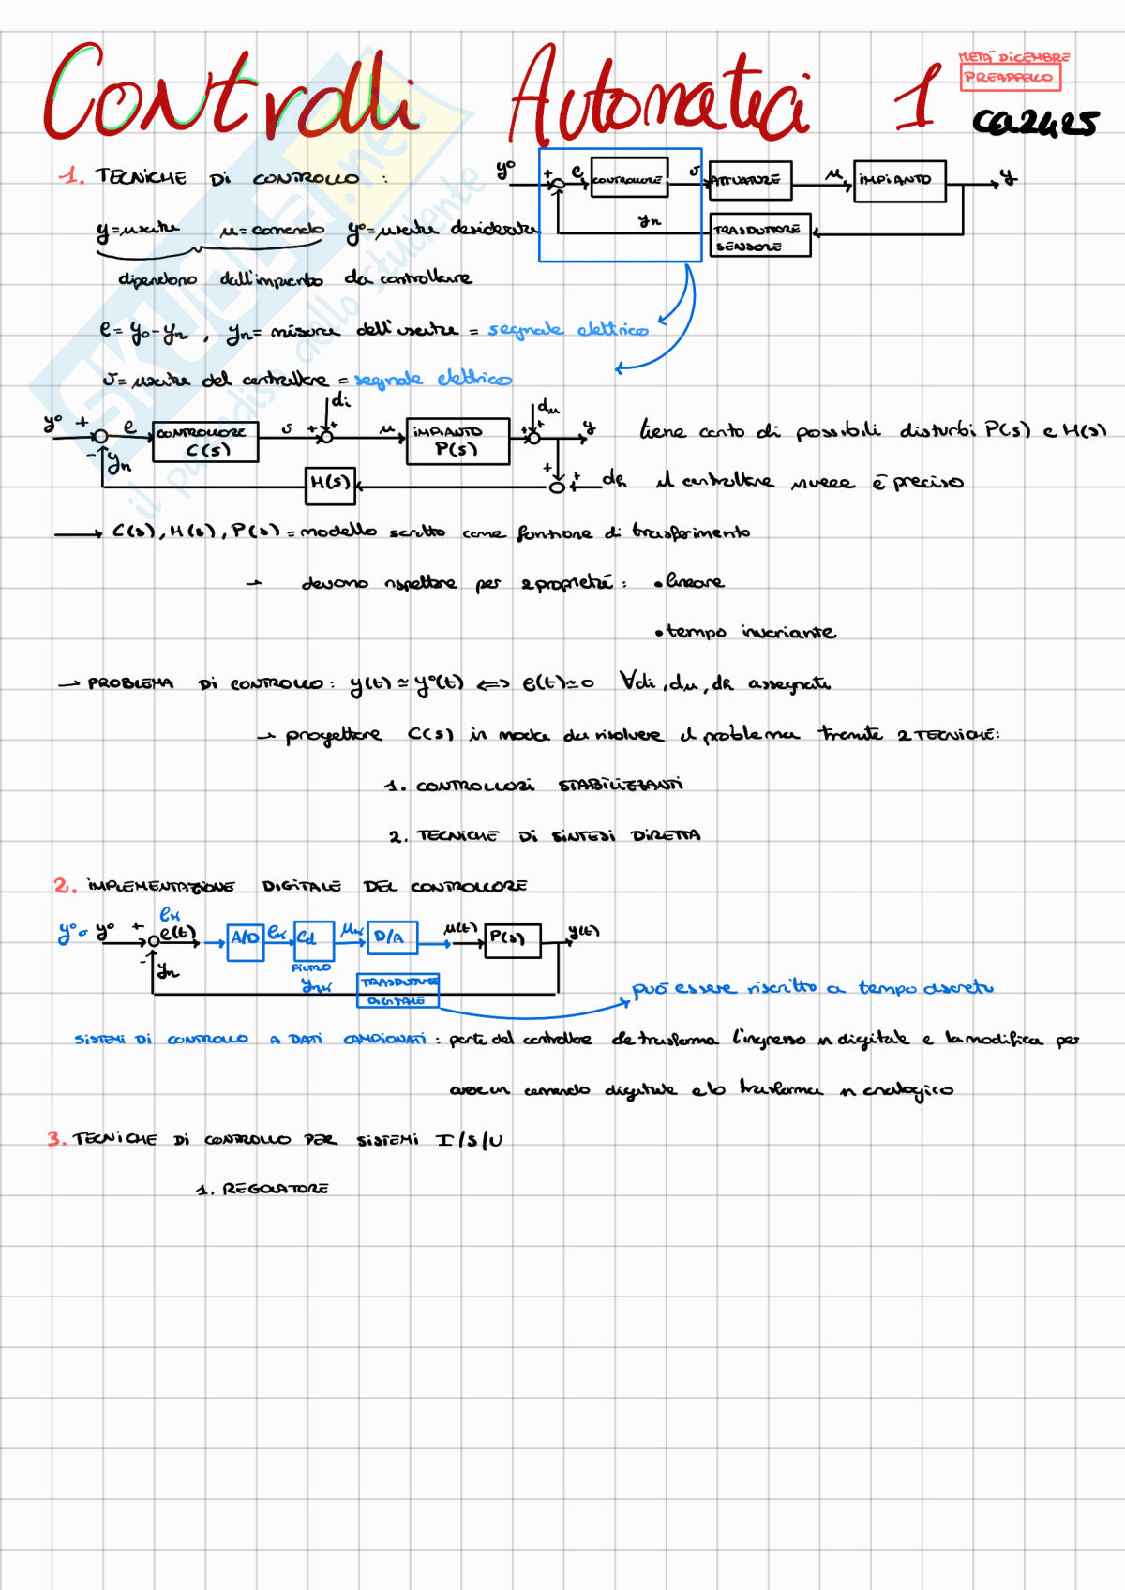 Controlli Automatici 1
METÀ DICEMBRE
PREAPPELLO
CA2425
1. TECNICHE DI CONTROLLO :
y⁰ + e CONTROLLORE v ATTUATORE u IMPIANTO y
ym TRASDUTTORE
SENSORE
y=uscita u=comando y⁰=uscita desiderata
dipendono dall'impianto da controllare
e= y₀-ym , ym= misura dell'uscita = segnale elettrico
v= uscita del controllore = segnale elettrico
di du
y⁰ + e CONTROLLORE C(s) v + + u IMPIANTO P(s) + + y
tiene conto di possibili disturbi P(s) e H(s)
- ym H(s) + + dm
il controllore invece è preciso
→ C(s), H(s), P(s) = modello scritto come funzione di trasferimento
→ devono rispettare per 2 proprietà : • lineare
• tempo invariante
→ PROBLEMA DI CONTROLLO : y(t) ≃ y⁰(t) ⟺ e(t)≃0 ∀di, du, dm assegnati
→ progettare C(s) in modo da risolvere il problema tramite 2 TECNICHE:
1. CONTROLLORI STABILIZZANTI
2. TECNICHE DI SINTESI DIRETTA
2. IMPLEMENTAZIONE DIGITALE DEL CONTROLLORE
ek
y⁰ y⁰ + e(t) A/D ek Cd uk D/A u(t) P(s) y(t)
- ym
ymk TRASDUTTORE
DIGITALE
può essere riscritto a tempo discreto
SISTEMI DI CONTROLLO A DATI CAMPIONATI : parte del controllore che trasforma l'ingresso in digitale e la modifica per
avere un comando digitale e lo trasforma in analogico
3. TECNICHE DI CONTROLLO PER SISTEMI I/S/U
1. REGOLATORE
SKUOLA.net
il paradiso dello studente